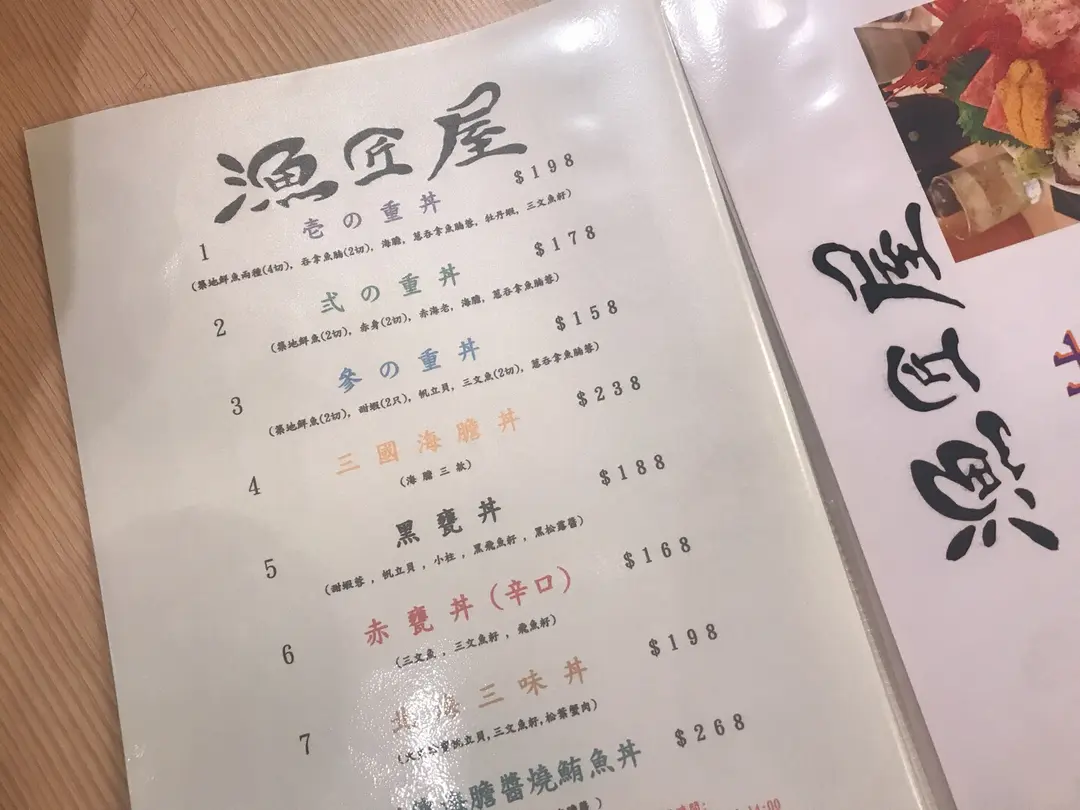 漁匠屋
1 壱の重丼 $198
(築地鮮魚兩種(4切), 吞拿魚腩(2切), 海膽, 蔥吞拿魚腩蓉, 牡丹蝦, 三文魚籽)
2 弎の重丼 $178
(築地鮮魚(2切), 赤身(2切), 赤海老, 海膽, 蔥吞拿魚腩蓉)
3 參の重丼 $158
(築地鮮魚(2切), 甜蝦(2只), 帆立貝, 三文魚(2切), 蔥吞拿魚腩蓉)
4 三國海膽丼 $238
(海膽三款)
5 黑甕丼 $188
(甜蝦蓉, 帆立貝, 小柱, 黑飛魚籽, 黑松露醬)
6 赤甕丼(辛口) $168
(三文魚, 三文魚籽, 飛魚籽)
7 三味丼 $198
帆立貝,三文魚籽,松葉蟹肉)
海膽醬燒鮪魚丼 $268
14:00
漁匠屋